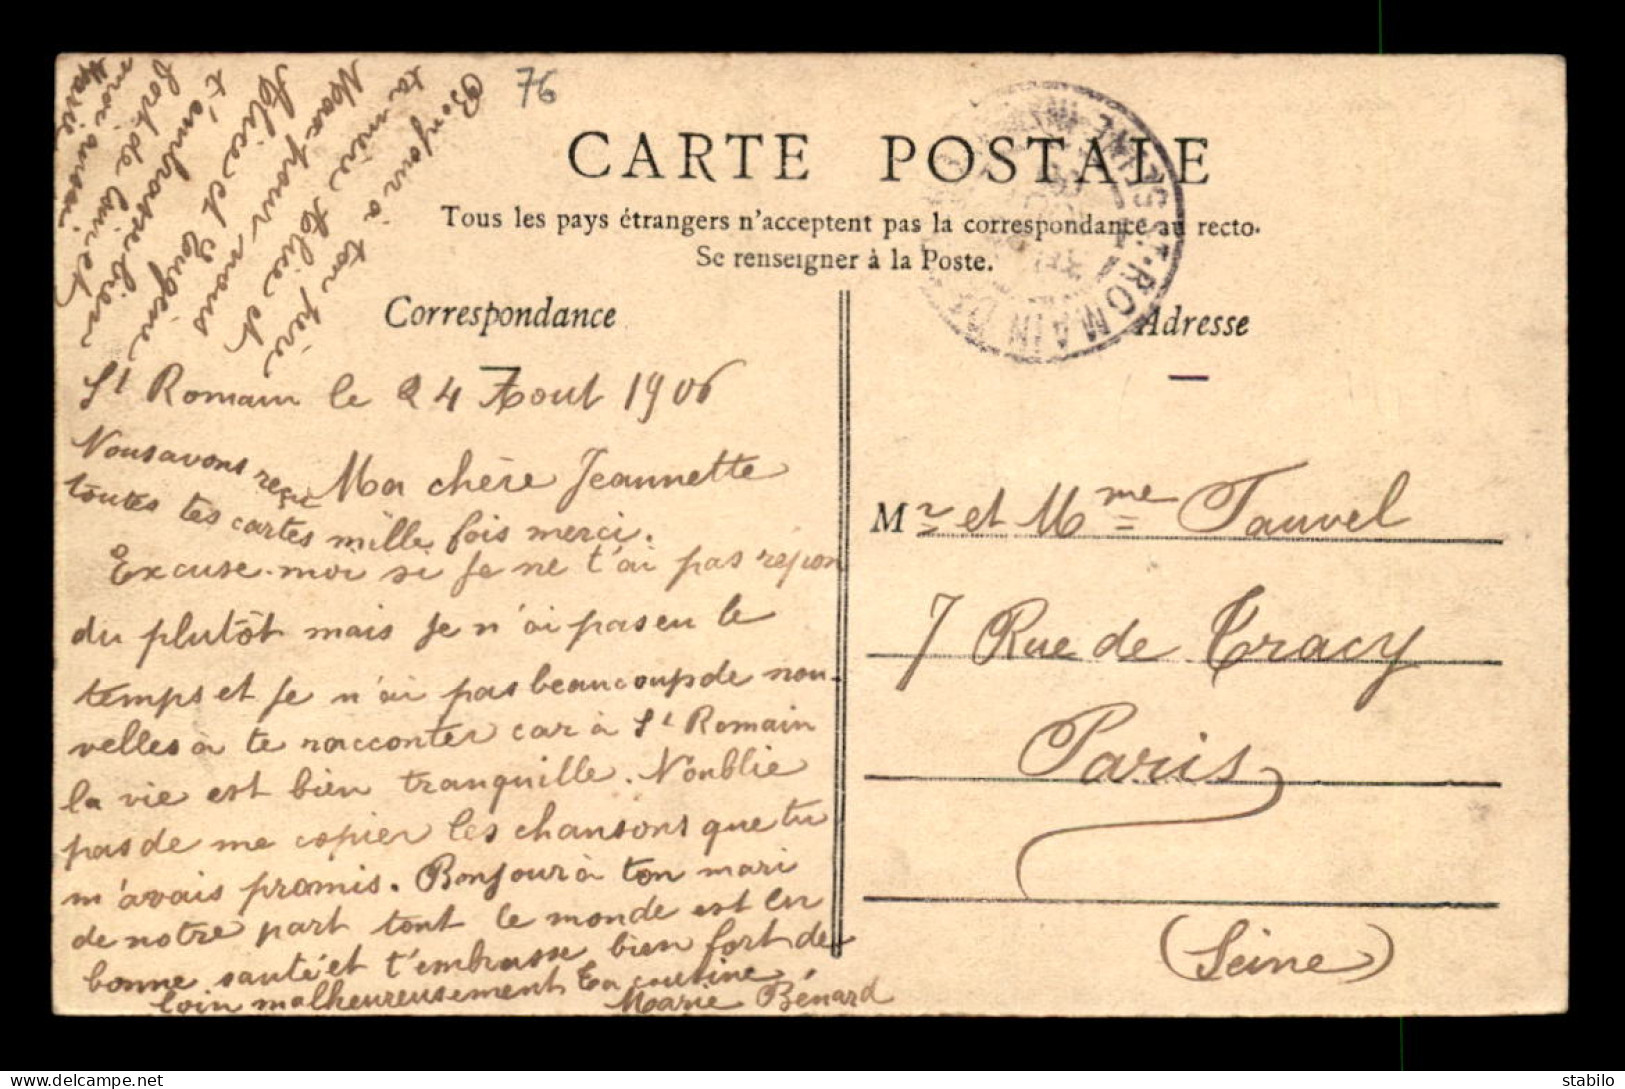 76
CARTE POSTALE
Tous les pays étrangers n'acceptent pas la correspondance au recto.
Se renseigner à la Poste.
Correspondance
Adresse
ST-ROMAIN DE
SEINE
Bonjour à ton père
ta mère Alice et
pour nous
Alice et Eugène
t'embrasse bien
fort de loin et
moi aussi
Marie
St Romain le 24 Aout 1906
Nous avons reçu
Ma chère Jeannette
toutes tes cartes mille fois merci.
Excuse-moi si je ne t'ai pas répon
du plutôt mais je n'ai pas eu le
temps et je n'ai pas beaucoup de nou-
velles à te racconter car à St Romain
la vie est bien tranquille. N'oublie
pas de me copier les chansons que tu
m'avais promis. Bonjour à ton mari
de notre part tout le monde est en
bonne santé et t'embrasse bien fort de
loin malheureusement Ta cousine
Marie Bénard
Mr et Mme Tauvel
7 Rue de Tracy
Paris
(Seine)
stabilo